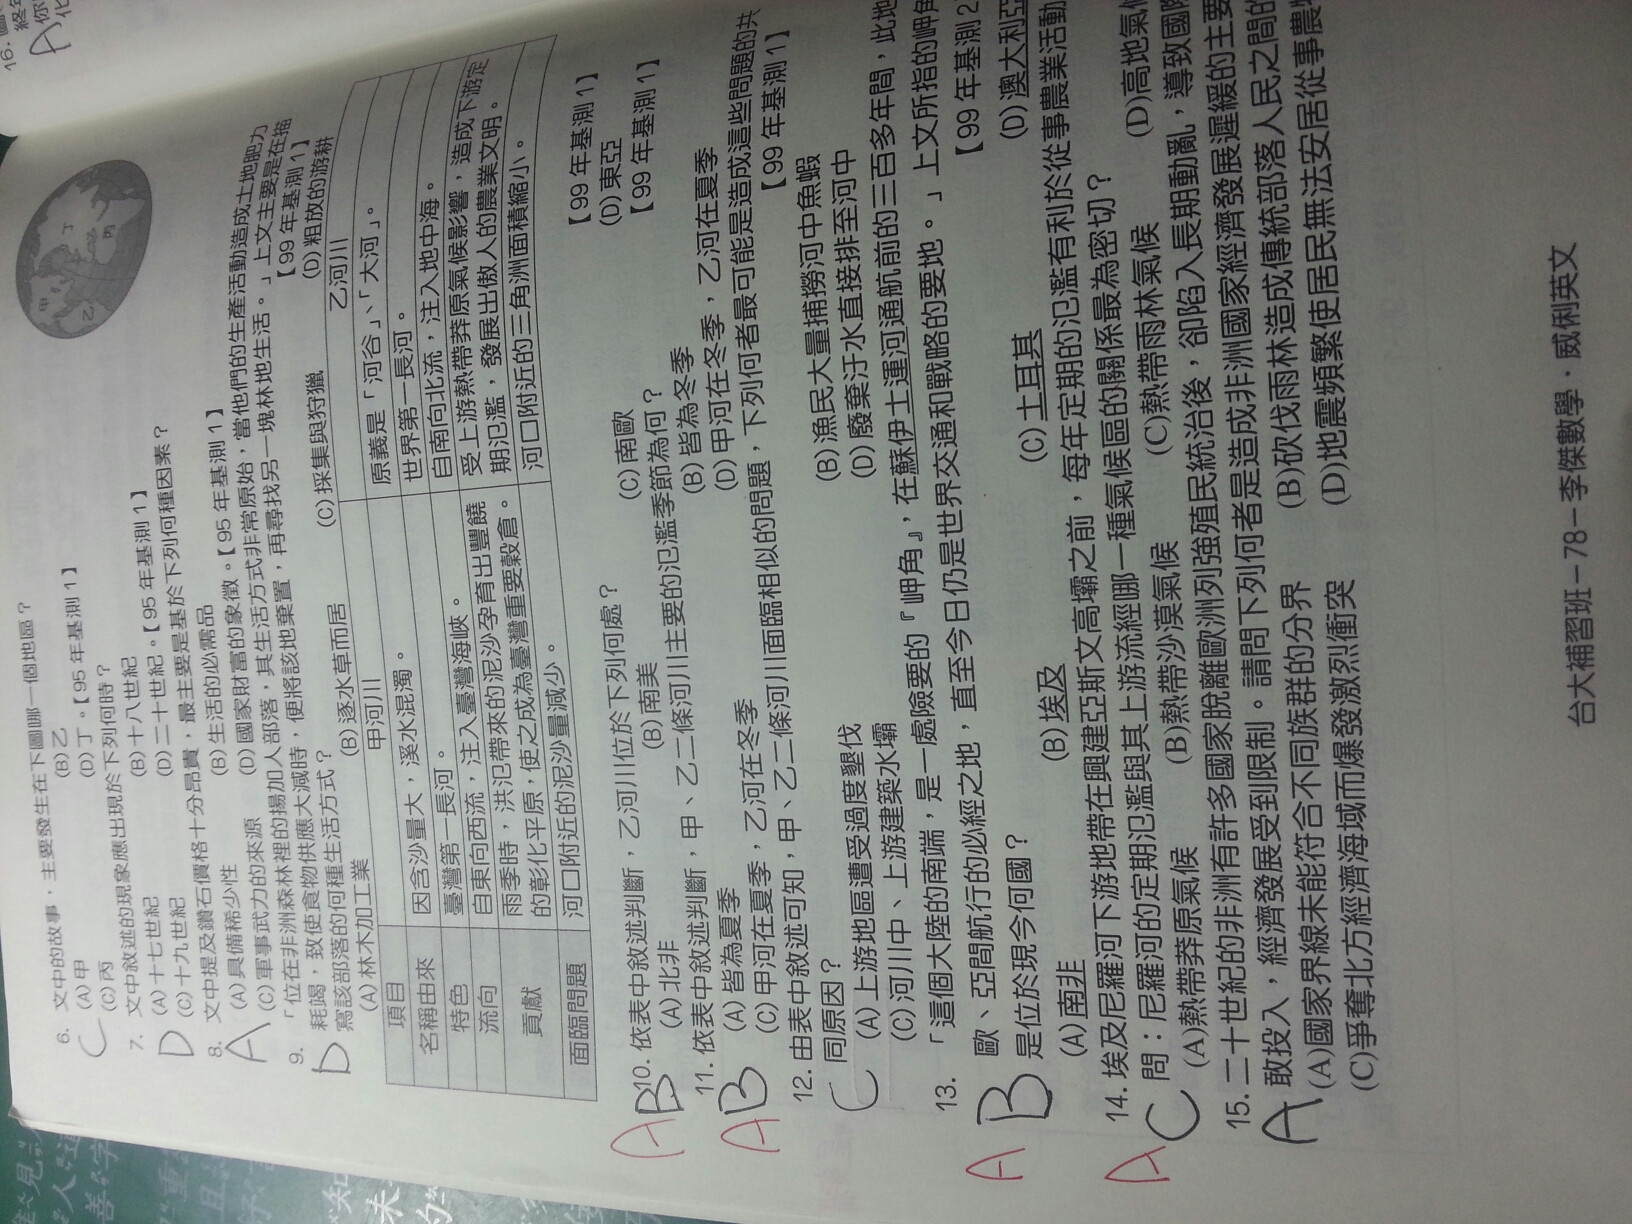 16.
A
6. 文中的故事，主要發生在下圖哪一個地區？
C
(A)甲 (B)乙
(C)丙 (D)丁。【95年基測1】
7. 文中敘述的現象應出現於下列何時？
D
(A)十七世紀 (B)十八世紀
(C)十九世紀 (D)二十世紀。【95年基測1】
8. 文中提及鑽石價格十分昂貴，最主要是基於下列何種因素？
A
(A)具備稀少性 (B)生活的必需品
(C)軍事武力的來源 (D)國家財富的象徵。【95年基測1】
9. 「位在非洲森林裡的揚加人部落，其生活方式非常原始，當他們的生產活動造成土地肥力
D
耗竭，致使食物供應大減時，便將該地棄置，再尋找另一塊林地生活。」上文主要是在描
寫該部落的何種生活方式？ 【99年基測1】
(A)林木加工業 (B)逐水草而居 (C)採集與狩獵 (D)粗放的游耕
甲
乙
丙
丁
項目 甲河川 乙河川
名稱由來 因含沙量大，溪水混濁。 原義是「河谷」、「大河」。
特色 臺灣第一長河。 世界第一長河。
流向 自東向西流，注入臺灣海峽。 自南向北流，注入地中海。
貢獻 雨季時，洪氾帶來的泥沙孕育出豐饒 受上游熱帶莽原氣候影響，造成下游定
的彰化平原，使之成為臺灣重要穀倉。 期氾濫，發展出傲人的農業文明。
面臨問題 河口附近的泥沙量減少。 河口附近的三角洲面積縮小。
10. 依表中敘述判斷，乙河川位於下列何處？ 【99年基測1】
A B
(A)北非 (B)南美 (C)南歐 (D)東亞
11. 依表中敘述判斷，甲、乙二條河川主要的氾濫季節為何？ 【99年基測1】
A B
(A)皆為夏季 (B)皆為冬季
(C)甲河在夏季，乙河在冬季 (D)甲河在冬季，乙河在夏季
12. 由表中敘述可知，甲、乙二條河川面臨相似的問題，下列何者最可能是造成這些問題的共
C
同原因？ 【99年基測1】
(A)上游地區遭受過度墾伐 (B)漁民大量捕撈河中魚蝦
(C)河川中、上游建築水壩 (D)廢棄汙水直接排至河中
13. 「這個大陸的南端，是一處險要的『岬角』，在蘇伊士運河通航前的三百多年間，此地
A B
歐、亞間航行的必經之地，直至今日仍是世界交通和戰略的要地。」上文所指的岬角
是位於現今何國？ 【99年基測2
(A)南非 (B)埃及 (C)土耳其 (D)澳大利亞
14. 埃及尼羅河下游地帶在興建亞斯文高壩之前，每年定期的氾濫有利於從事農業活動
A C
問：尼羅河的定期氾濫與其上游流經哪一種氣候區的關係最為密切？
(A)熱帶莽原氣候 (B)熱帶沙漠氣候 (C)熱帶雨林氣候 (D)高地氣候
15. 二十世紀的非洲有許多國家脫離歐洲列強殖民統治後，卻陷入長期動亂，導致國際
A
敢投入，經濟發展受到限制。請問下列何者是造成非洲國家經濟發展遲緩的主要
(A)國家界線未能符合不同族群的分界 (B)砍伐雨林造成傳統部落人民之間的
(C)爭奪北方經濟海域而爆發激烈衝突 (D)地震頻繁使居民無法安居從事農
台大補習班－78－李傑數學．威俐英文